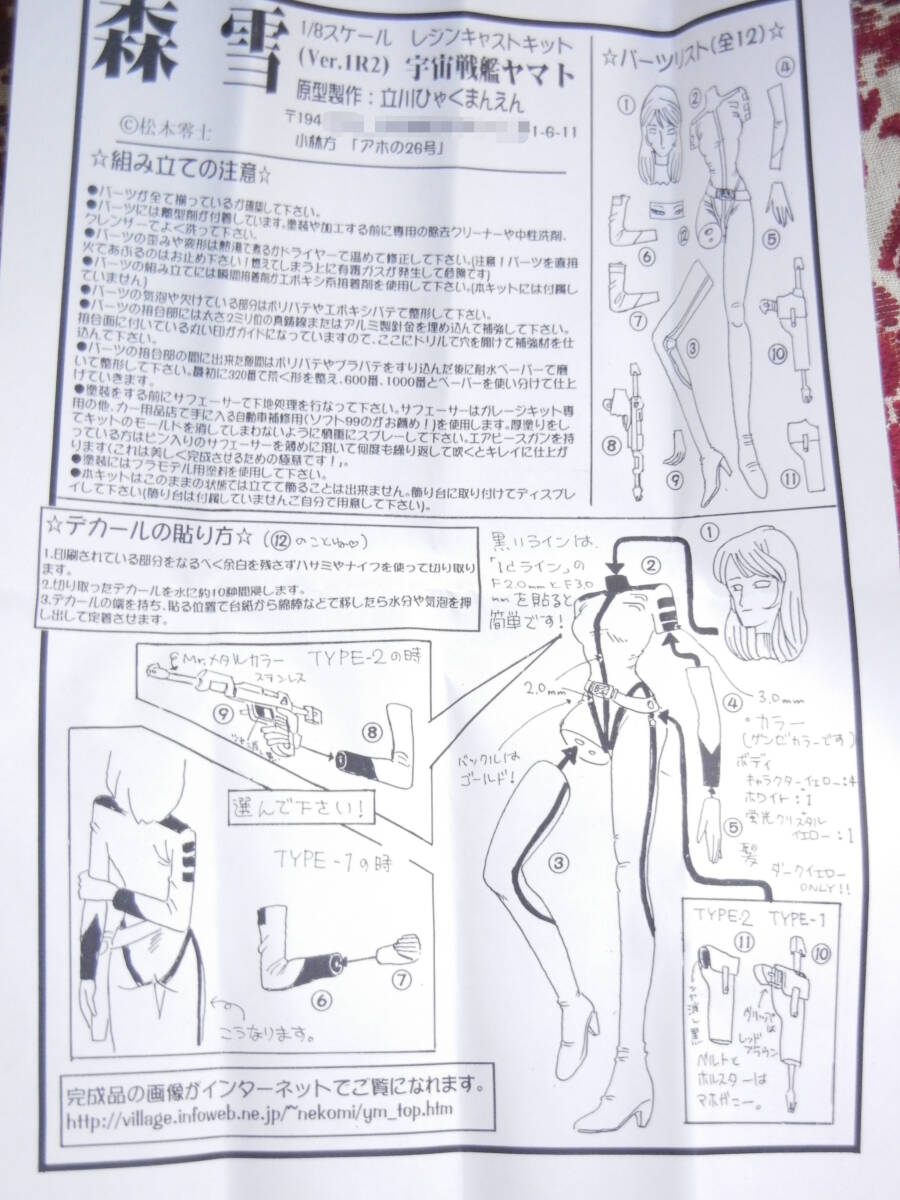 森 雪
1/8スケール レジンキャストキット
(Ver.1R2) 宇宙戦艦ヤマト
原型製作：立川ひゃくまんえん
〒194
1-6-11
小林方 「アホの26号」
©松本零士
☆組み立ての注意☆
●パーツが全て揃っているか確認して下さい。
●パーツには離型剤が付着しています。塗装や加工する前に専用の除去クリーナーや中性洗剤、
クレンザーでよく洗って下さい。
●パーツの歪みや変形は熱湯で煮るかドライヤーで温めて修正して下さい。(注意！パーツを直接
火であぶるのはお止め下さい！燃えてしまう上に有毒ガスが発生して危険です)
●パーツの組み立てには瞬間接着剤かエポキシ系接着剤を使用して下さい。(本キットには付属し
ていません)
●パーツの気泡や欠けている部分はポリパテやエポキシパテで整形して下さい。
●パーツの接合部には太さ2ミリ位の真鍮線またはアルミ製針金を埋め込んで補強して下さい。
接合面に付いている丸い印がガイドになっていますので、ここにドリルで穴を開けて補強材を仕
込んで下さい。
●パーツの接合部の間に出来た隙間はポリパテやプラパテをすり込んだ後に耐水ペーパーで磨
いて整形して下さい。最初に320番で荒く形を整え、600番、1000番とペーパーを使い分けて仕上
げていきます。
●塗装をする前にサフェーサーで下地処理を行なって下さい。サフェーサーはガレージキット専
用の他、カー用品店で手に入る自動車補修用(ソフト99のがお薦め！)を使用します。厚塗りをし
てキットのモールドを消してしまわないように慎重にスプレーして下さい。エアピースガンを持
っている方はビン入りのサフェーサーを薄めに溶いて何度も繰り返して吹くとキレイに仕上が
ります(これは美しく完成させるための極意です！)。
●塗装にはプラモデル用塗料を使用して下さい。
●本キットはこのままの状態では立てて飾ることは出来ません。飾り台に取り付けてディスプレ
イして下さい(飾り台は付属していませんご自分で用意して下さい)。
☆パーツリスト(全12)☆
① ② ④
⑫ ⑤
⑥
⑦ ③
⑩
⑧
⑨ ⑪
☆デカールの貼り方☆ (⑫のことね♡)
1.印刷されている部分をなるべく余白を残さずハサミやナイフを使って切り取り
ます。
2.切り取ったデカールを水に約10秒間浸します。
3.デカールの端を持ち、貼る位置で台紙から綿棒などで移したら水分や気泡を押
し出して定着させます。
黒いラインは、
「ICライン」の
F2.0mmとF3.0
mmを貼ると
簡単です！
② ①
Mr.メタルカラー
ステンレス
TYPE-2の時
⑨
⑧
選んで下さい！
TYPE-1の時
⑥ ⑦
こうなります。
2.0mm
バックルは
ゴールド！
③
④
3.0mm
・カラー
(グンゼカラーです)
ボディ
キャラクターイエロー：4
ホワイト：1
蛍光クリスタル
イエロー：1
⑤
髪
ダークイエロー
ONLY!!
TYPE-2 TYPE-1
⑪ ⑩
ツヤ消し黒
グリップは
レッド
ブラウン
ベルトと
ホルスターは
マホガニー。
完成品の画像がインターネットでご覧になれます。
http://village.infoweb.ne.jp/~nekomi/ym_top.htm